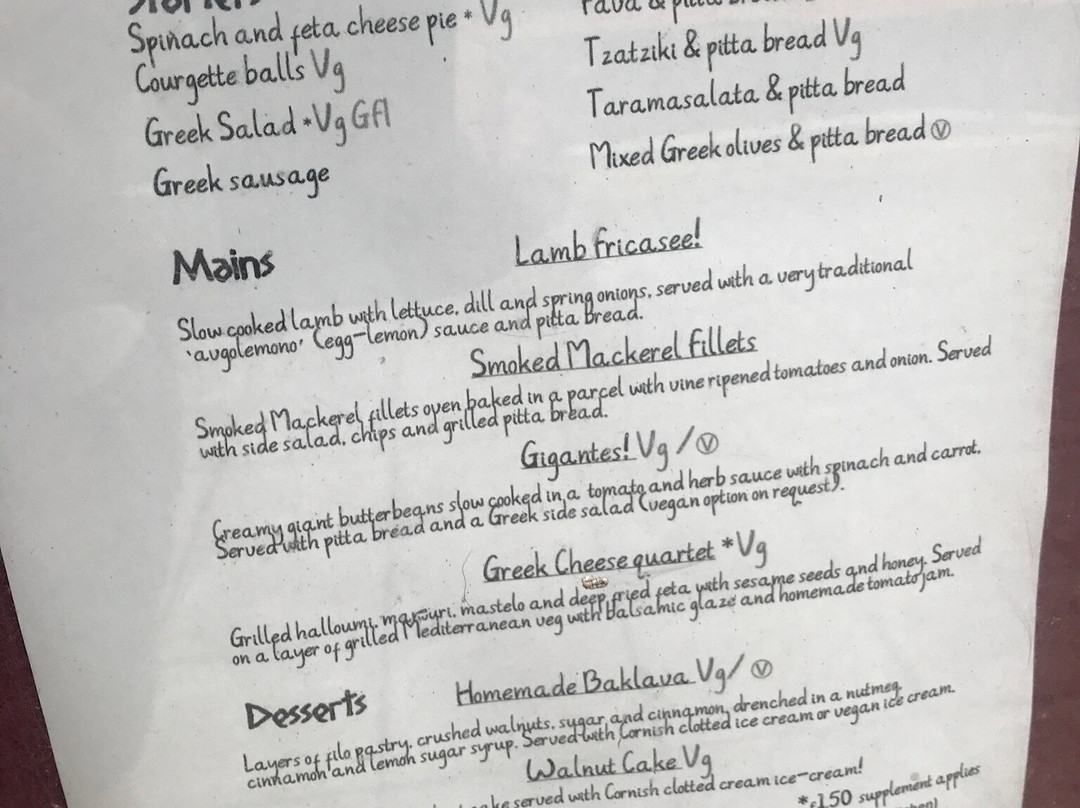 Starters
Spinach and feta cheese pie * Vg
Courgette balls Vg
Greek Salad *Vg Gfl
Greek sausage
Fava & pitta bread
Tzatziki & pitta bread Vg
Taramasalata & pitta bread
Mixed Greek olives & pitta bread Ⓥ
Mains
Lamb fricasee!
Slow cooked lamb with lettuce, dill and spring onions, served with a very traditional
'avgolemono' (egg-lemon) sauce and pitta bread.
Smoked Mackerel fillets
Smoked Mackerel fillets oven baked in a parcel with vine ripened tomatoes and onion. Served
with side salad, chips and grilled pitta bread.
Gigantes! Vg / Ⓥ
Creamy giant butterbeans slow cooked in a tomato and herb sauce with spinach and carrot.
Served with pitta bread and a Greek side salad (vegan option on request).
Greek Cheese quartet *Vg
Grilled halloumi, manouri, mastelo and deep fried feta with sesame seeds and honey. Served
on a layer of grilled Mediterranean veg with balsamic glaze and homemade tomato jam.
Desserts
Homemade Baklava Vg/ Ⓥ
Layers of filo pastry, crushed walnuts, sugar and cinnamon, drenched in a nutmeg,
cinnamon and lemon sugar syrup. Served with Cornish clotted ice cream or vegan ice cream.
Walnut Cake Vg
served with Cornish clotted cream ice-cream!
*£1.50 supplement applies